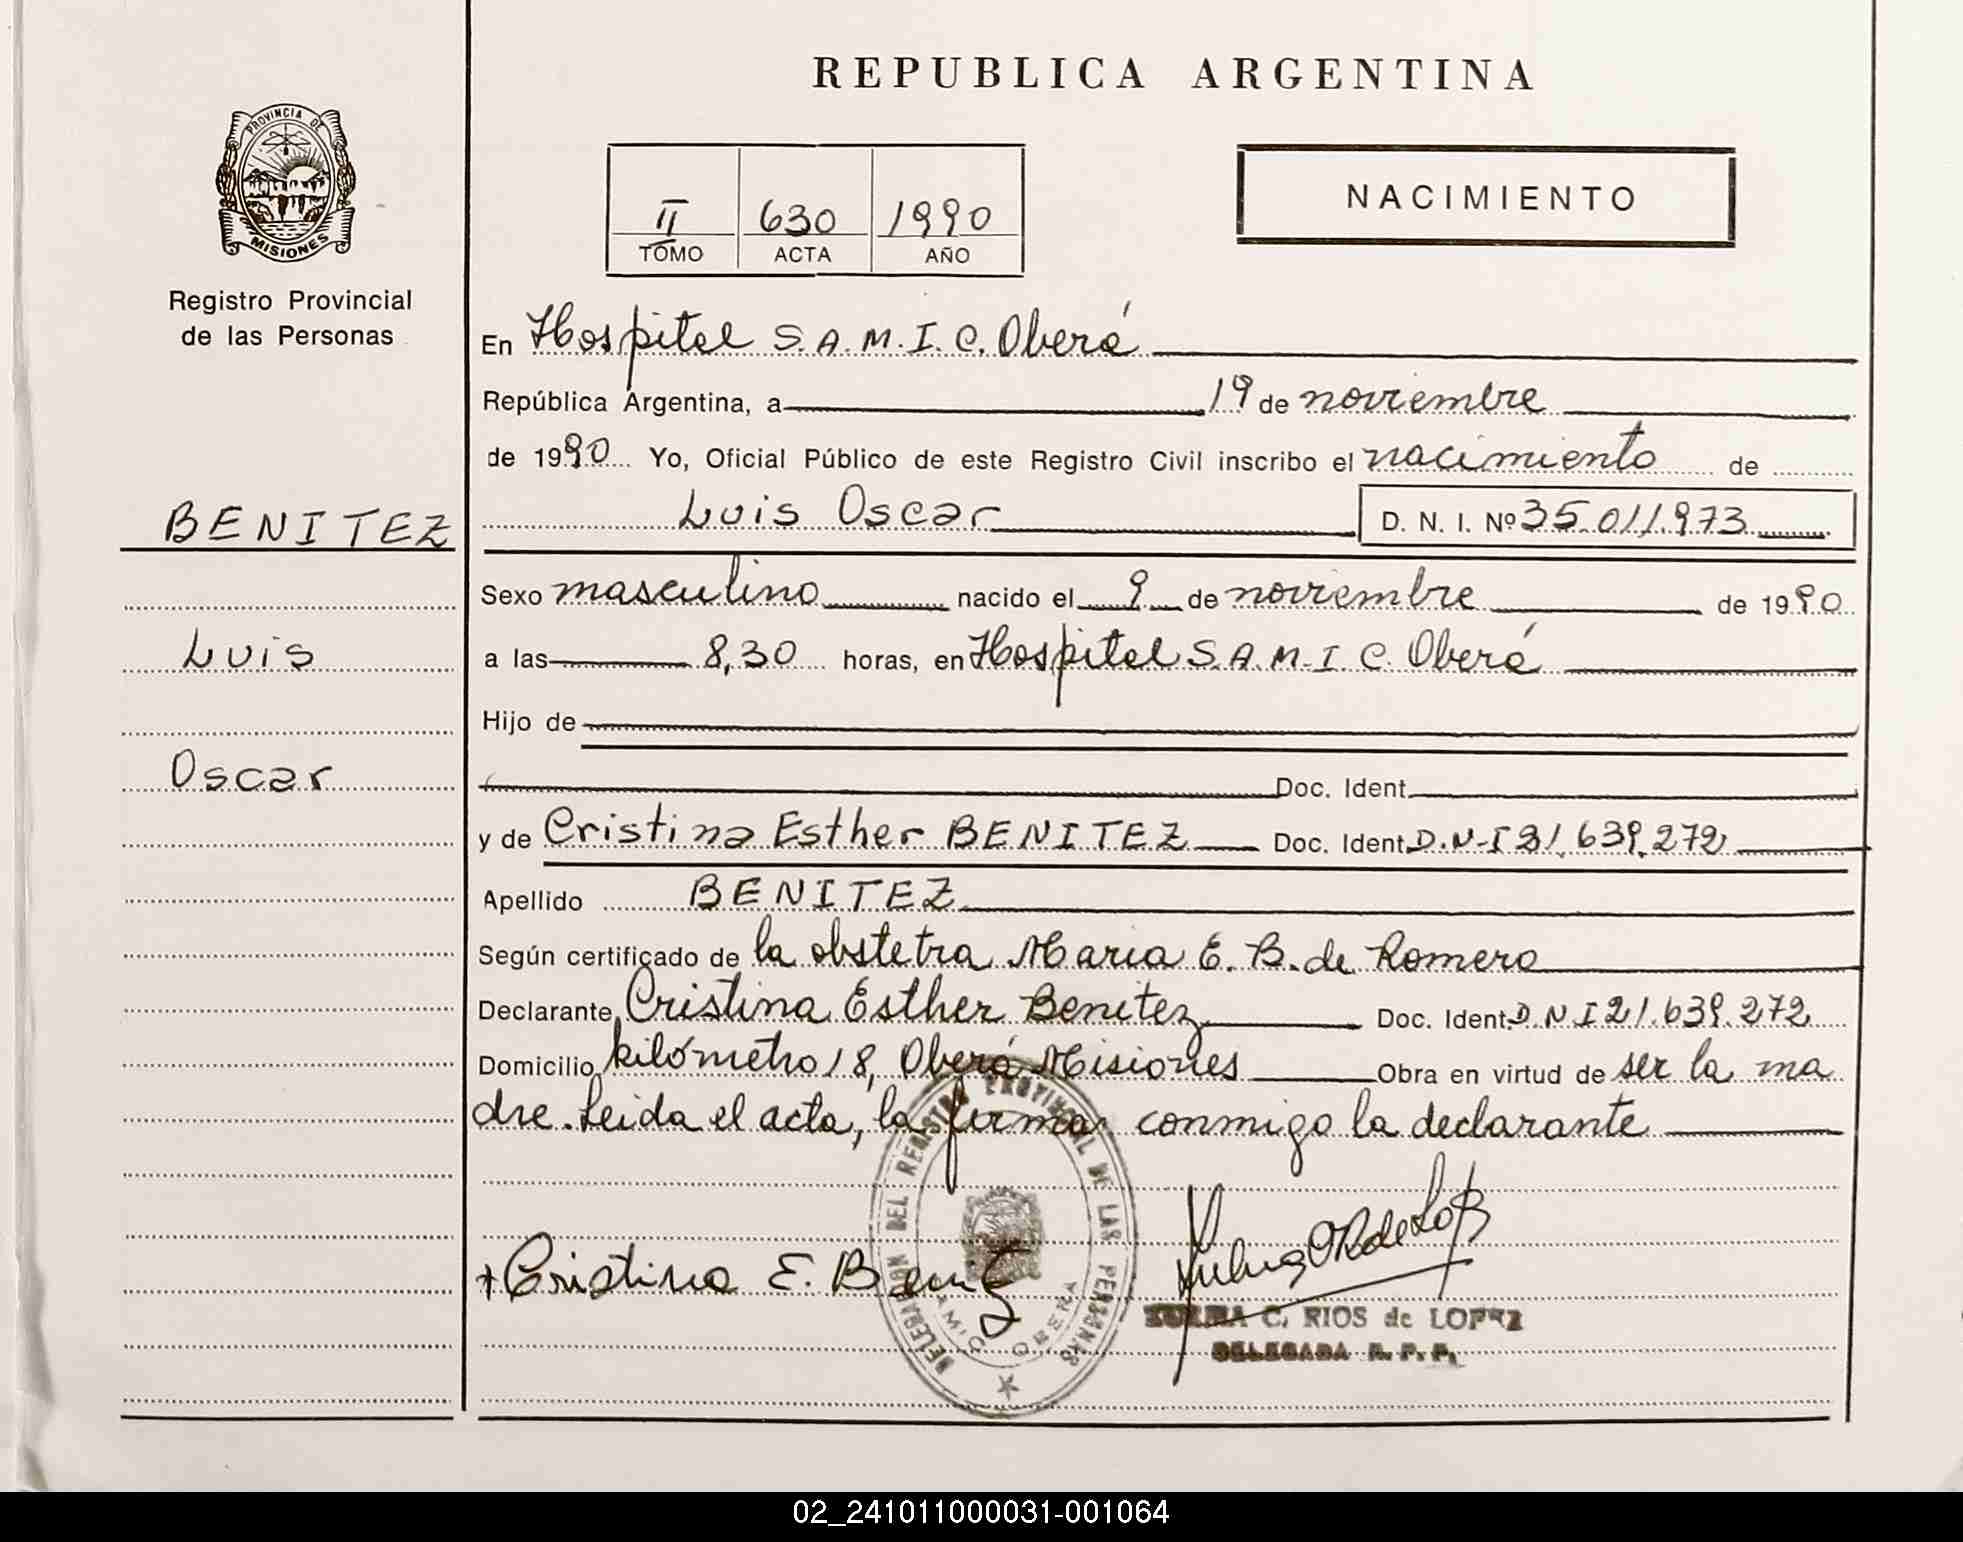 REPUBLICA ARGENTINA
PROVINCIA DE
MISIONES
Registro Provincial
de las Personas
II 630 1990
TOMO ACTA AÑO
NACIMIENTO
BENITEZ
Luis
Oscar
En Hospital S.A.M.I.C. Oberá
República Argentina, a 19 de noviembre
de 1990 Yo, Oficial Público de este Registro Civil inscribo el nacimiento de
Luis Oscar D. N. I. Nº 35.011.973
Sexo masculino nacido el 9 de noviembre de 1990
a las 8,30 horas, en Hospital S.A.M.I.C. Oberá
Hijo de
Doc. Ident.
y de Cristina Esther BENITEZ Doc. Ident. D.N.I 21.639.272
Apellido BENITEZ
Según certificado de la obstetra Maria E. B. de Romero
Declarante Cristina Esther Benitez Doc. Ident. D.N I 21.639.272
Domicilio kilómetro 18, Oberá Misiones Obra en virtud de ser la ma
dre. Leida el acta, la firma conmigo la declarante
DELEGACION DEL REGISTRO PROVINCIAL DE LAS PERSONAS
SAMIC OBERA
Cristina E. Benitez
C. RIOS de LOPEZ
DELEGADA R. P. P.
02_241011000031-001064